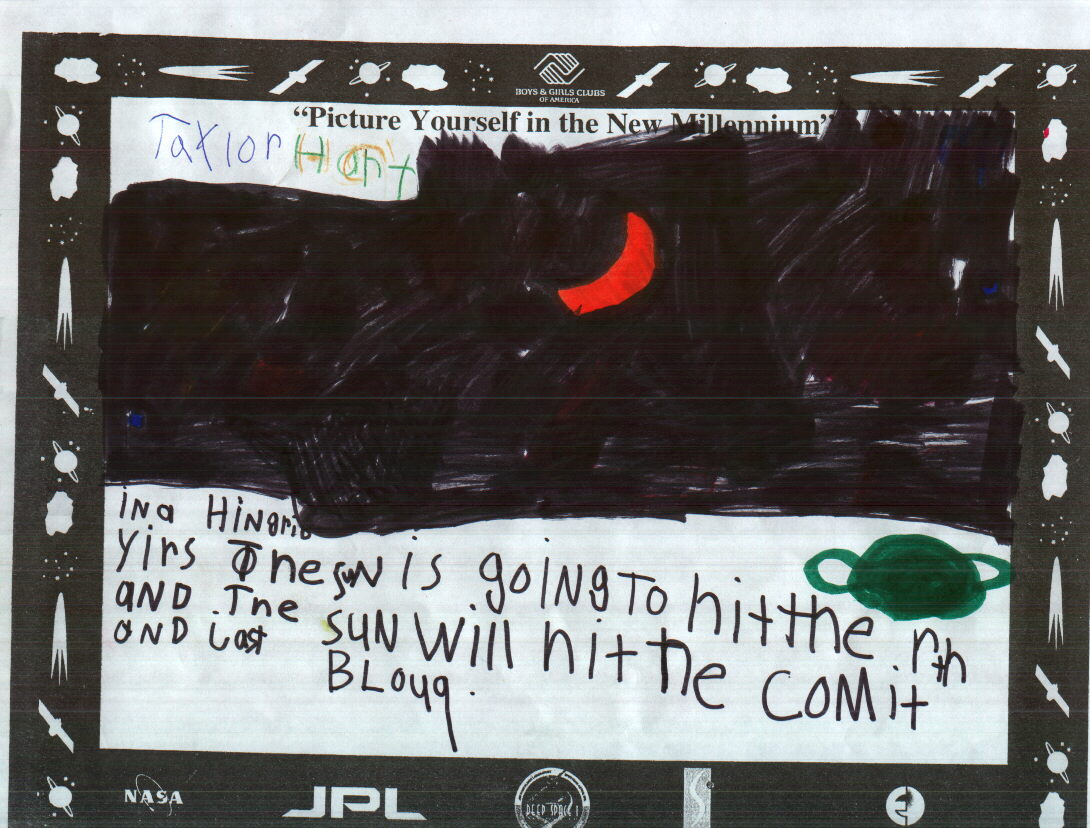 BOYS & GIRLS CLUBS
OF AMERICA
“Picture Yourself in the New Millennium”
Taylor Hart
iNa HiNgrid
Yirs The SUN is goiNg To hit the rth
aND The SUN Will hit the COMit
aND Last BLouq.
NASA JPL DEEP SPACE 1